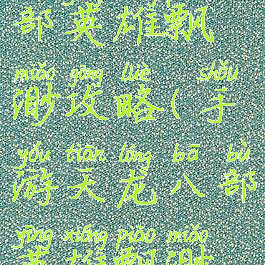 部英雄飘
miǎo gōng lüè shǒu
渺攻略(手
yóu tiān lóng bā bù
游天龙八部
yīng xióng piāo miǎo
英雄飘渺